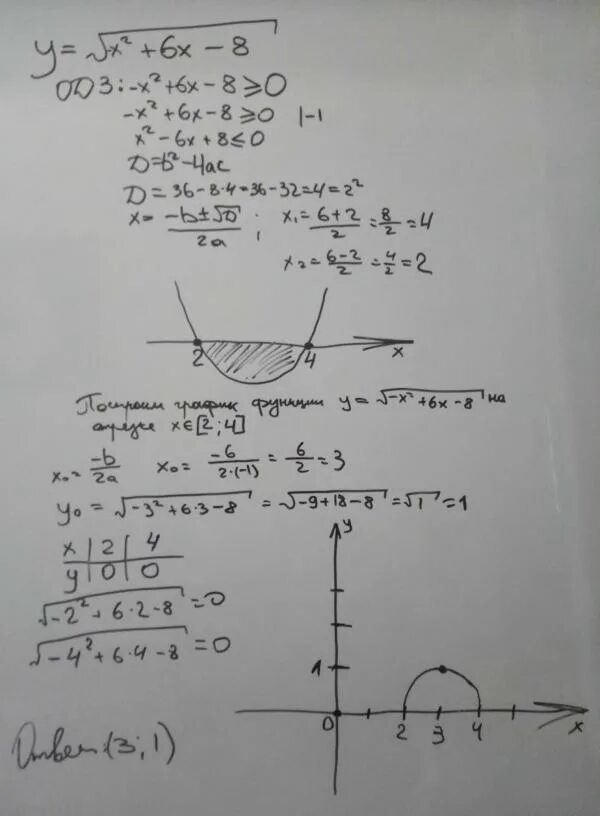 y = √-x² + 6x - 8
ОДЗ: -x² + 6x - 8 ≥ 0
-x² + 6x - 8 ≥ 0 |-1
x² - 6x + 8 ≤ 0
D = b² - 4ac
D = 36 - 8·4 = 36 - 32 = 4 = 2²
x = -b±√D / 2a ; x₁ = 6+2 / 2 = 8/2 = 4
x₂ = 6-2 / 2 = 4/2 = 2
2 4 x
Построим график функции y = √-x² + 6x - 8 на
отрезке x∈[2;4]
x₀ = -b / 2a x₀ = -6 / 2·(-1) = 6/2 = 3
y₀ = √-3² + 6·3 - 8 = √-9 + 18 - 8 = √1 = 1
x | 2 | 4
y | 0 | 0
√-2² + 6·2 - 8 = 0
√-4² + 6·4 - 8 = 0
y
1
0 2 3 4 x
Ответ: (3; 1)